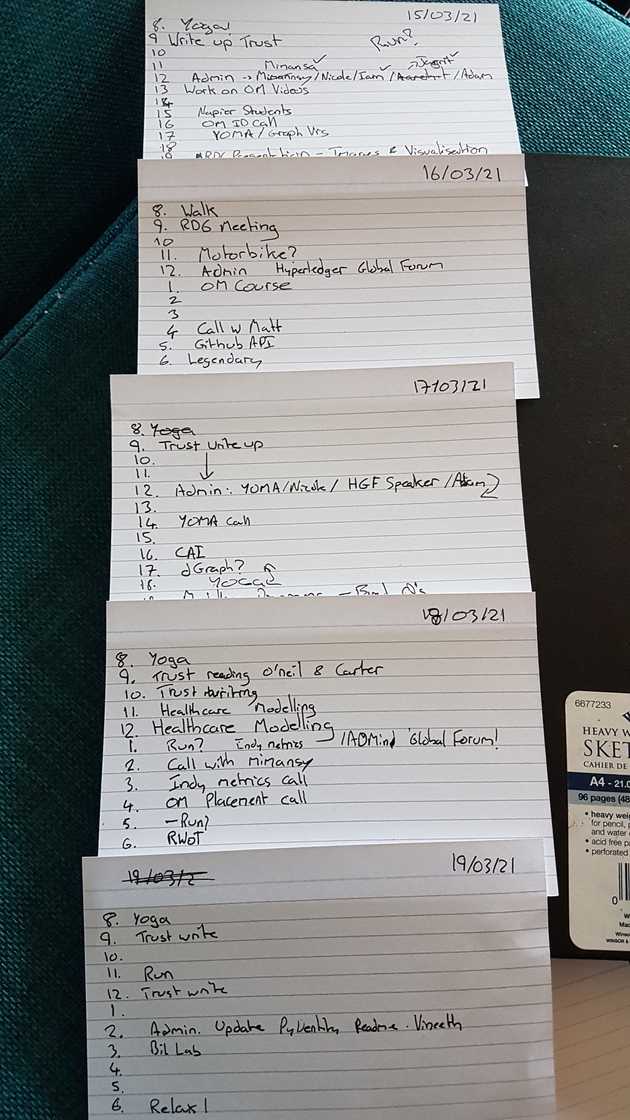 15/03/21
8. Yoga
9 Write up Trust
Run?
10
11 Mimansa ✓
Jagrit ✓
12 Admin → /Nicole/Iain ✓/ /Adam
13 Work on OM Videos
14
15 Napier Students
16 OM ID Call
17 YOMA / Graph Vis
18
19 Presentation - Images & Visualisation
16/03/21
8. Walk
9. RDG Meeting
10
11. Motorbike?
12. Admin Hyperledger Global Forum
1. OM Course
2
3
4 Call w Matt
5. Github API
6. Legendary
17/03/21
8. Yoga
9. Trust write up
10. ↓
11.
12. Admin: YOMA/Nicole/ HGF Speaker /Adam
13.
14. YOMA Call
15.
16. CAI
17. dGraph?
18. YOGA
18/03/21
8. Yoga
9. Trust reading O'neil & Carter
10. Trust writing
11. Healthcare Modelling
12. Healthcare Modelling
1. Run? Indy metrics — /ADMin Global Forum!
2. Call with Mimansy
3. Indy metrics call
4. OM Placement call
5. -Run?
6. RWoT
19/03/2
19/03/21
8. Yoga
9. Trust write
10.
11. Run
12. Trust write
1.
2. Admin. Update PyDentity Readme. Vineeth
3. Bil Lab
4.
5.
6. Relax!
6677233
HEAVY W
SKET
CAHIER DE
A4 - 21.0
96 pages (48
• heavy weig
for pencil, p
and water
• acid free pa
• perforated
0